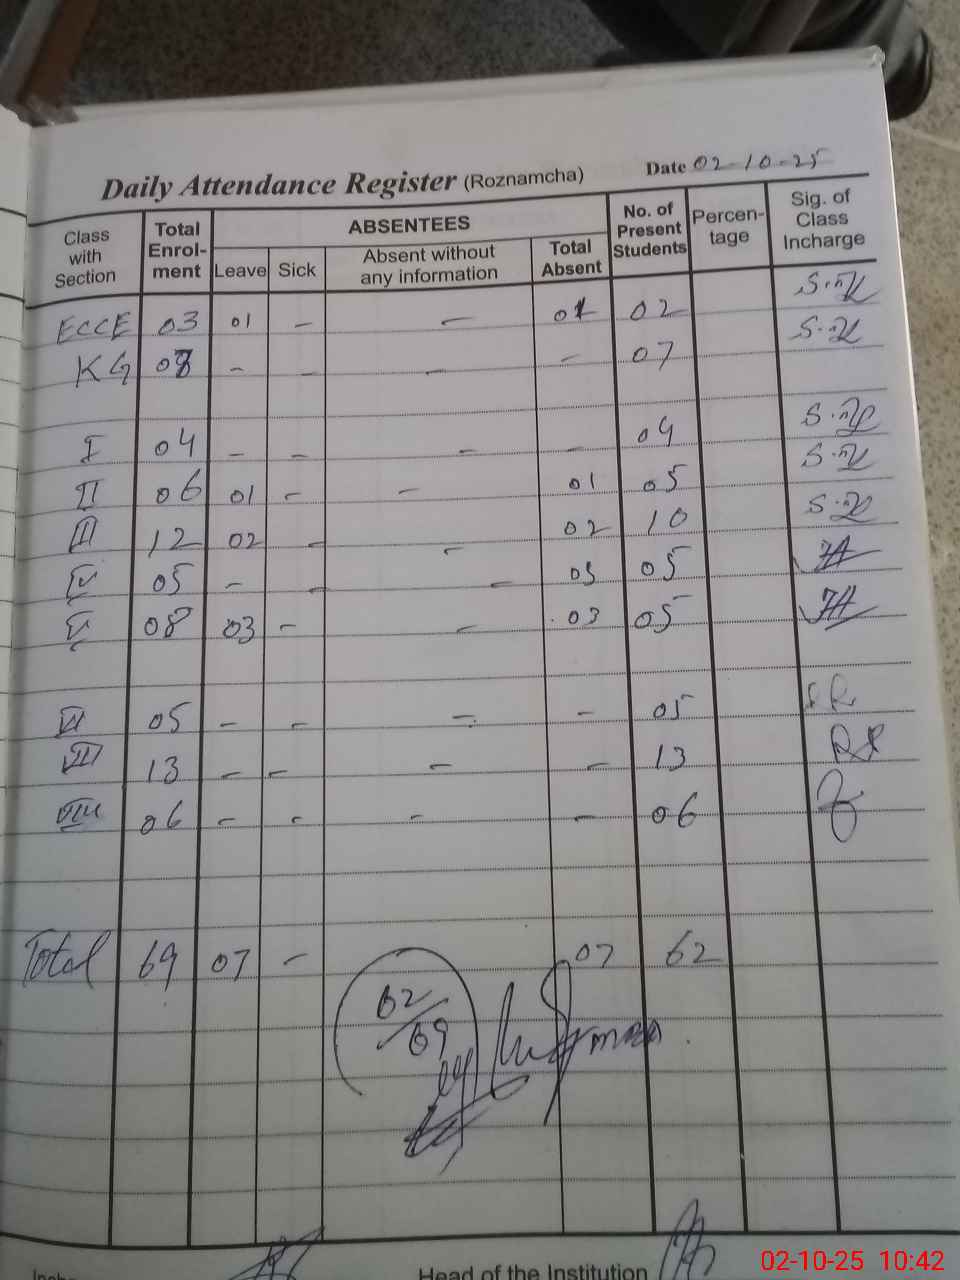 Daily Attendance Register (Roznamcha) Date 02-10-25
Class with Section Total Enrol-ment ABSENTEES Leave Sick Absent without any information Total Absent No. of Present Students Percen-tage Sig. of Class Incharge
ECCE 03 01 - - 01 02
KG 07 - - - - 07
I 04 - - - - 04
II 06 01 - - 01 05
III 12 02 - - 02 10
IV 05 - - - 05
V 08 03 - - 03 05
VI 05 - - - - 05
VII 13 - - - - 13
VIII 06 - - - - 06
Total 69 07 - 07 62
62/69
Head of the Institution
02-10-25 10:42